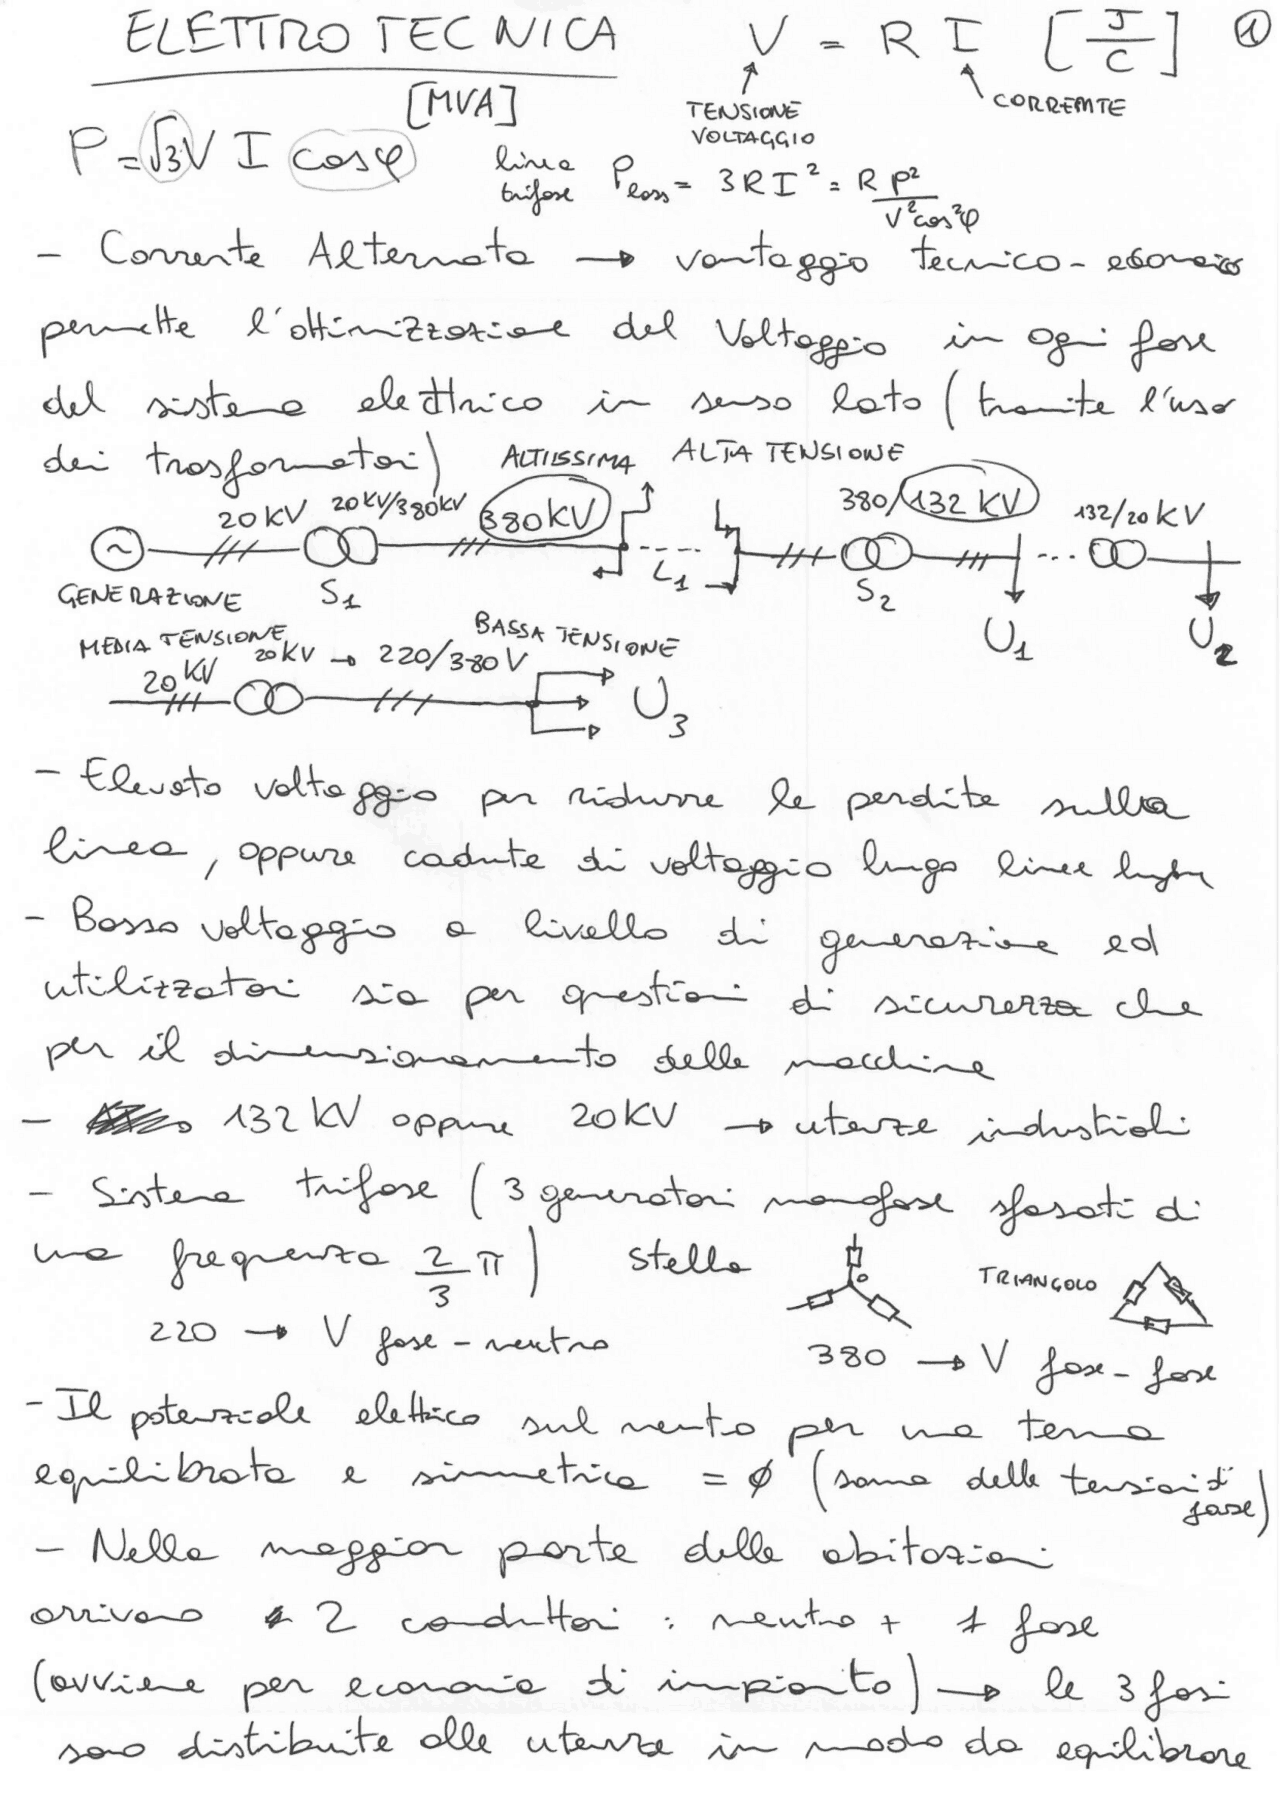 ELETTROTECNICA V = R I [J/C] 1
TENSIONE VOLTAGGIO CORRENTE
[MVA]
P = √3 V I cosφ linea trifase Ploss = 3RI² = R P² / V²cos²φ
- Corrente Alternata → vantaggio tecnico-economico
permette l'ottimizzazione del Voltaggio in ogni fase
del sistema elettrico in senso lato (tramite l'uso
dei trasformatori) ALTISSIMA ALTA TENSIONE
20KV 20KV/380KV 380KV 380/132 KV 132/20KV
~ L1
GENERAZIONE S1 S2 U1 U2
MEDIA TENSIONE BASSA TENSIONE
20KV 20KV → 220/380V U3
- Elevato voltaggio per ridurre le perdite sulla
linea, oppure cadute di voltaggio lungo linee lunghe
- Basso voltaggio a livello di generazione ed
utilizzatori sia per questioni di sicurezza che
per il dimensionamento delle macchine
- 132 KV oppure 20KV → utenze industriali
- Sistema trifase (3 generatori monofase sfasati di
una frequenza 2/3 π) stella o TRIANGOLO
220 → V fase-neutro 380 → V fase-fase
- Il potenziale elettrico sul neutro per una terna
equilibrata e simmetrica = ∅ (somma delle tensioni di fase)
- Nella maggior parte delle abitazioni
arrivano 2 conduttori : neutro + 1 fase
(avviene per economia di impianto) → le 3 fasi
sono distribuite alle utenze in modo da equilibrare